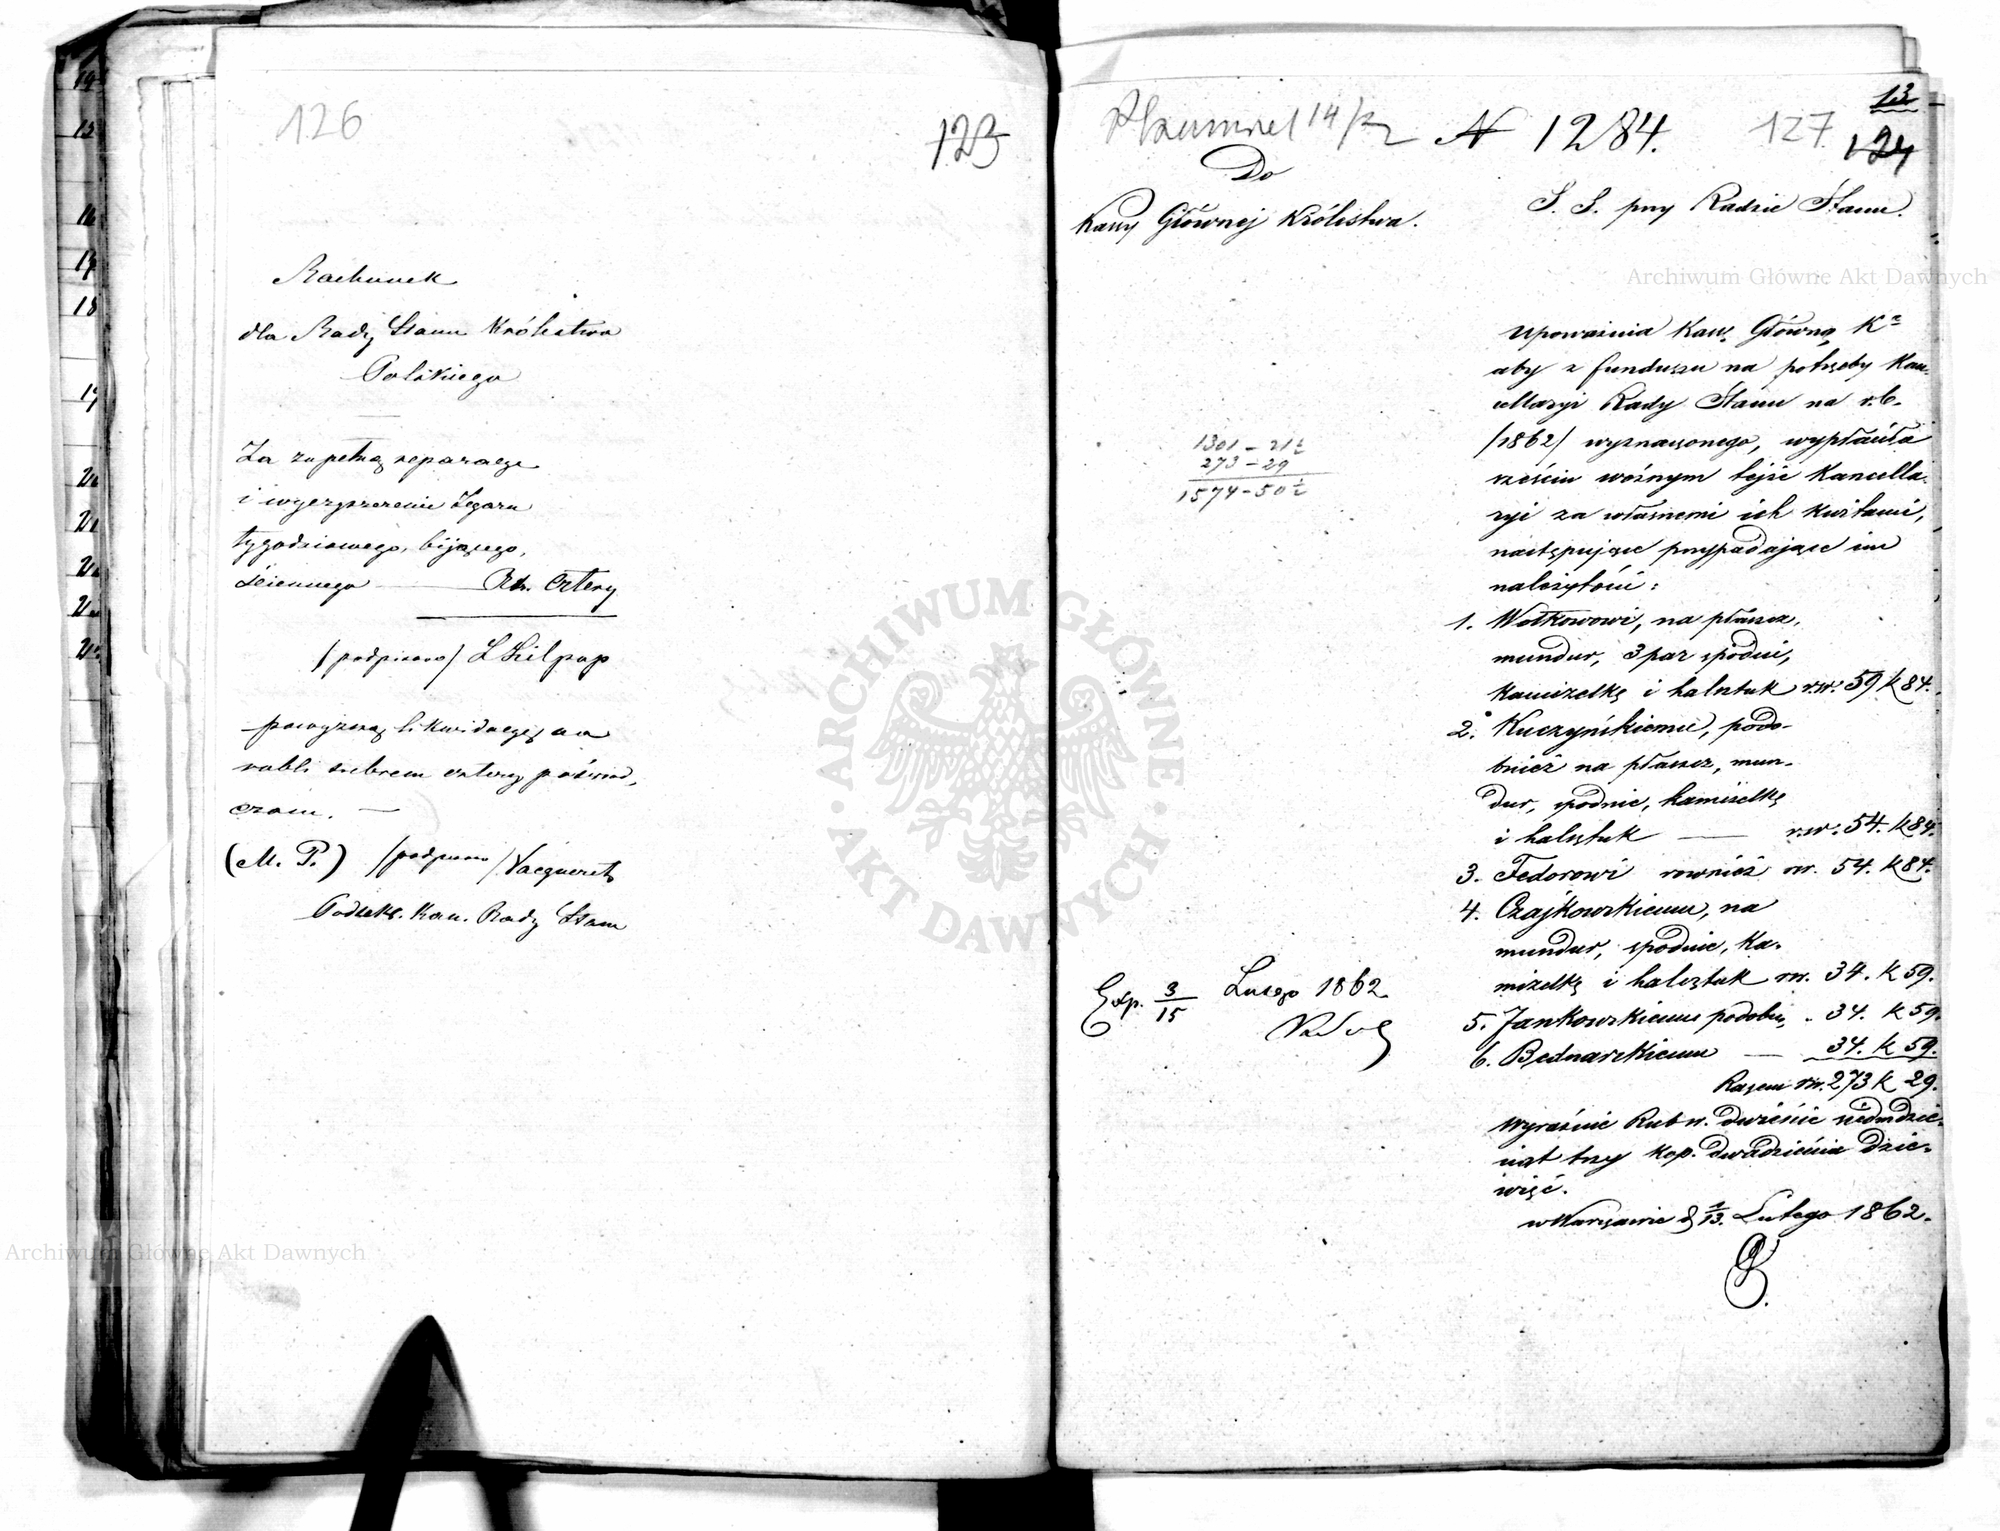 126
123
Rachunek
dla Rady Stanu Królestwa
Polskiego
Za zupełną reparacyę
i wyczyszczenie Zegaru
tygodniowego, bijącego,
ściennego Rs. cztery
/podpisano/ L Lilpop
powyższą likwidacyę na
rubli srebrem cztery poświad„
czam. —
(M. P.) /podpisano/ Vacqueret
Podsek. Kan. Rady Stanu
14/2 N 1284. 127 13
124
Do
Kassy Głównej Królestwa.
S. S. przy Radzie Stanu.
Upoważnia Kassę Główną Kª
aby z funduszu na potrzeby Kan„
cellaryi Rady Stanu na r.b.
/1862/ wyznaczonego, wypłaciła
sześciu woźnym tejże Kancella„
ryi za własnemi ich kwitami,
następujące przypadające im
należytości:
1301 – 21½
273 – 29
1574 – 50½
1. Wołkowowi, na płaszcz,
mundur, 3 par spodni,
kamizelkę i halsztuk rsr. 59 k 84.
2. Kuczyńskiemu, podo-
bnież na płaszcz, mun-
dur, spodnie, kamizelkę
i halsztuk — rsr. 54. k 84.
3. Fedorowi rownież sr. 54. k 84.
4. Czajkowskiemu, na
mundur, spodnie, ka-
mizelkę i halsztuk sr. 34. k 59.
5. Jankowskiemu podobn. 34. k 59.
6. Bednarskiemu — 34. k 59.
Razem sr. 273 k 29.
Wyraźnie Rub sr. dwieście siedmdzie-
siąt trzy kop. dwadzieścia dzie-
więć.
w Warszawie d 1/13. Lutego 1862.
Exp. 3/15 Lutego 1862
Archiwum Główne Akt Dawnych
Archiwum Główne Akt Dawnych
ARCHIWUM GŁÓWNE
AKT DAWNYCH